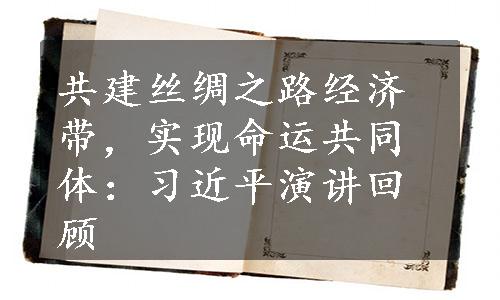 共建丝绸之路经济
带，实现命运共同
体：习近平演讲回
顾